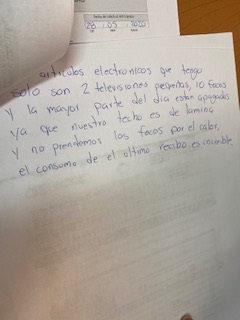 28 03 2020
articulos electronicos que tengo
solo son 2 televisiones pequeñas, 10 focos
y la mayor parte del dia estan apagados
ya que nuestro techo es de lamina
y no prendemos los focos por el calor,
el consumo de el ultimo recibo es increible.